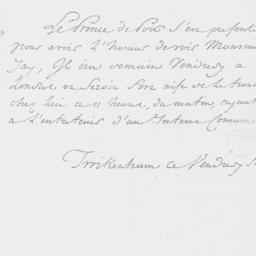 Le Prince de Poix s'en présent
pour avoir l'honneur de voir Monsieur
Jay, Il ira demain Vendredy a
Londres en Seroit fort aise de le trouv
chez lui a 11 heures du matin ayant
a l'entretenir d'un Interet Commun
Twickenham ce Vendredy